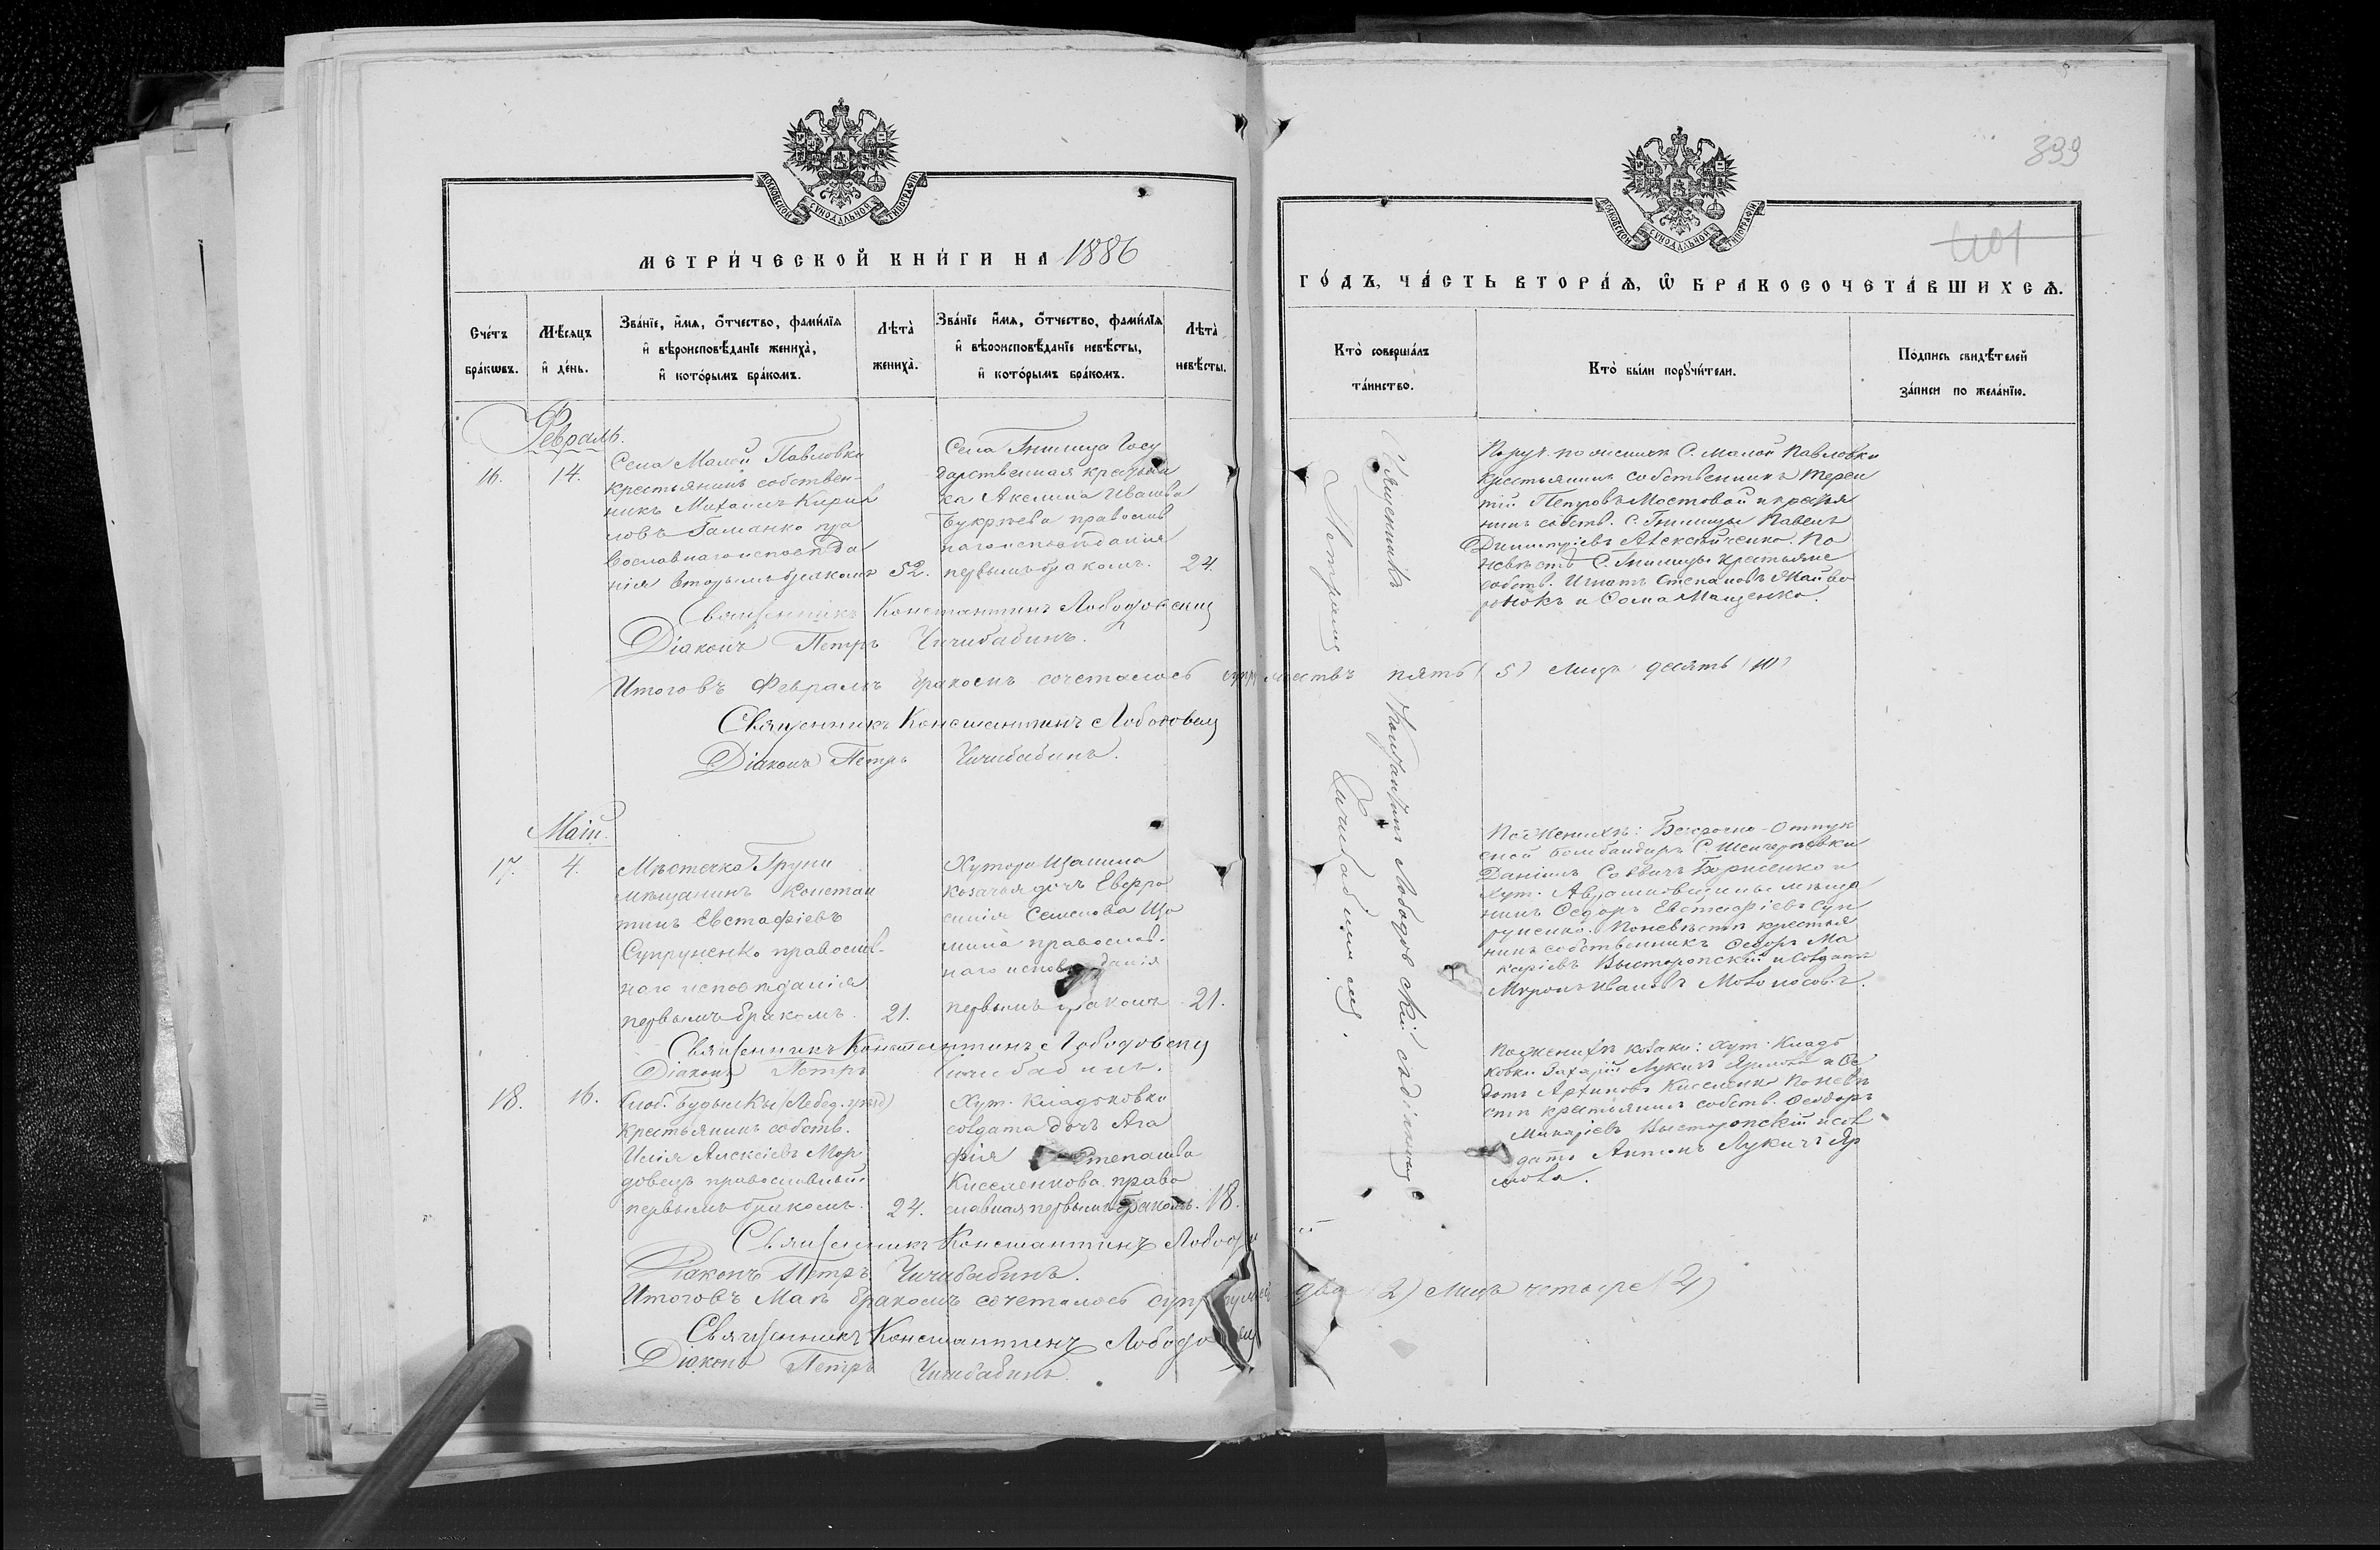 МОСКОВСКОЙ СѴНОДАЛЬНОЙ ТИПОГРАФІИ
МЕТРИ́ЧЕСКОЙ КНИ́ГИ НА 1886
Сче́тъ бра́кѡвъ.
Мѣ́сяцъ и҆ де́нь.
Зва́нїе, и҆́мя, ѻ҆́тчество, фами́лїя
и҆ вѣроисповѣ́данїе жениха̀,
и҆ кото́рымъ бра́комъ.
Лѣта̀ жениха̀.
Зва́нїе и҆́мя, ѻ҆́тчество, фами́лїя
и҆ вѣроисповѣ́данїе невѣ́сты,
и҆ кото́рымъ бра́комъ.
Лѣта̀ невѣ́сты.
Февраль.
16. 14.
Села Малой Павловки
крестьянинъ собствен-
никъ Михаилъ Кирил
ловъ Гаманко пра
вославнаго исповѣда
нія вторымъ бракомъ 52.
Села Гнилица Госу
дарственная крестьян
ка Акелина Иванова
Букрѣева православ
наго исповѣданія
первымъ бракомъ. 24.
Священникъ Константинъ Лободовскій
Діаконъ Петръ Чичибабинъ.
Итого въ Февралѣ бракомъ сочеталось супружествъ пять (5) лица десять (10)
Священникъ Константинъ Лободовскій
Діаконъ Петръ Чичибабинъ.
Май.
17. 4.
Мѣстечка Груни
мѣщанинъ Констан
тинъ Евстафіевъ
Супруненко православ-
наго исповѣданія
первымъ бракомъ. 21.
Хутора
козачья дочь Евфро
синія Семенова
православ-
наго исповѣданія
первымъ бракомъ 21.
Священникъ Константинъ Лободовскій
Діаконъ Петръ Чичибабинъ.
18. 16.
Слоб. Будылки (Лебед. уѣзд)
крестьянинъ собств.
Илія Алексіевъ Мор
довецъ православный
первымъ бракомъ. 24.
Хут. Кладьковки
солдата дочь Ага
фія Степанова
Киселенкова право
славная первымъ бракомъ. 18.
Священникъ Константинъ
Діаконъ Петръ Чичибабинъ.
Итого въ Маѣ бракомъ сочеталось два (2) лица четыре (4)
Священникъ Константинъ
Діаконъ Петръ Чичибабинъ.
399
МОСКОВСКОЙ СѴНОДАЛЬНОЙ ТИПОГРАФІИ
401
ГО́ДЪ, ЧА́СТЬ ВТОРА́Ѧ, Ѽ БРАКОСОЧЕТА́ВШИХСѦ.
Кто̀ соверша́лъ
та́инство.
Кто̀ бы́ли порꙋчи́тели.
По́дпись свидѣ́телей
за́писи по жела́нїю.
Священникъ Константинъ Лободовскій съ діакономъ
Петромъ Чичибабинымъ.
Поруч. по женихѣ С. Малой Павловки
крестьянинъ собственникъ Терен
тій Петровъ Мостовой и крестья
нинъ собств. С. Гнилицы Павелъ
Димитріевъ Алексѣйченко. По
невѣстѣ С. Гнилицы крестьяне
собств. Игнатъ Степановъ Жайво
ронокъ и Ѳома Мащенко.
По женихѣ: Безсрочно-отпук
сной бомбандиръ С.
Даніилъ Саввичъ Борисенко и
Хут. мѣща
нинъ Ѳедоръ Евстафіевъ Суп
руненко. По невѣстѣ крестья
нинъ собственникъ Ѳедоръ Ма
каріевъ Выторопскій и солдатъ
Миронъ Ивановъ
По женихѣ козаки: Хут: Кладь
ковки Захарій Лукичъ и Ѳе
дотъ Архиповъ Киселенко По невѣ
стѣ крестьянинъ собств. Ѳеодоръ
Макаріевъ Выторопскій и сол
датъ Антонъ Лукичъ